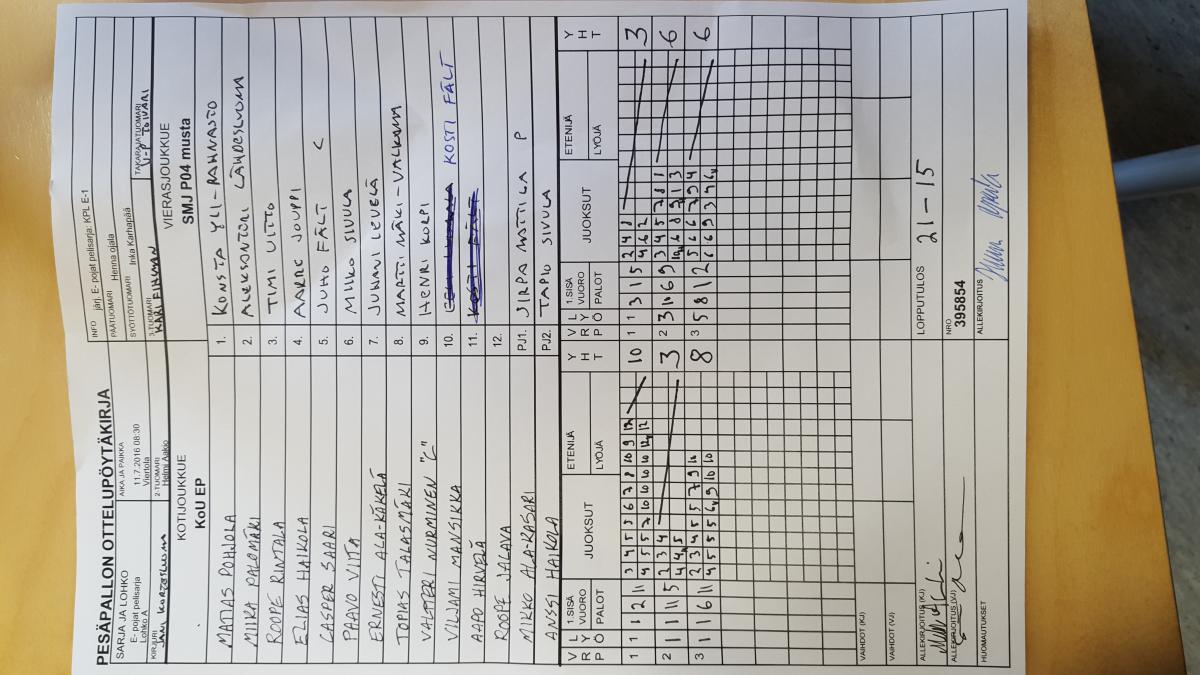 PESÄPALLON OTTELUPÖYTÄKIRJA
SARJA JA LOHKO
E- pojat pelisarja
Lohko A
AIKA JA PAIKKA
11.7.2016 08:30
Viertola
INFO järj. E- pojat pelisarja: KPL E-1
PÄÄTUOMARI Henna ojala
SYÖTTÖTUOMARI Inka Karhapää
KIRJURI
2-TUOMARI
Helmi Aakko
3-TUOMARI
TAKARAJATUOMARI
KOTIJOUKKUE
KoU EP
VIERASJOUKKUE
SMJ P04 musta
MATIAS POHJOLA 1. KONSTA YLI-RAHNASTO
MIIKA PALOMÄKI 2. ALEKSANTERI LÄHDESLUOMA
ROOPE RINTALA 3. TIMI UITTO
ELIAS HAIKOLA 4. AARE JOUPPI
CASPER SAARI 5. JUHO FÄLT C
PAAVO VIITA 6. MIIKO SIVULA
ERNESTI ALA-KÄKELÄ 7. JUHANI LEVELÄ
TOPIAS TALASMÄKI 8. MARTTI MÄKI-VALKAMA
VALTTERI NURMINEN "C" 9. HENRI KORPI
VILJAMI MANSIKKA 10. KOSTI FÄLT
AAPO HIRVELÄ 11. KOSTI FÄLT
ROOPE JALAVA 12.
MIKKO ALA-KASARI PJ1. JIRPA MATTILA P
ANSSI HAIKOLA PJ2. TAPIO SIVULA
V R P L Y Ö 1.SISÄ VUORO PALOT JUOKSUT ETENIJÄ LYÖJÄ Y H T V R P L Y Ö 1.SISÄ VUORO PALOT JUOKSUT ETENIJÄ LYÖJÄ Y H T
1 1 1 2 11 3 4 5 5 6 7 8 10 9 12 10 1 1 3 1 5 2 4 8 3
4 5 5 7 10 10 10 10 12 12 4 6 2
2 1 1 11 5 2 3 4 3 2 3 10 6 9 3 4 5 7 8 1 6
4 4 5 10 6 8 9 1 3
3 1 1 6 11 2 3 4 5 5 7 9 10 8 3 5 8 12 5 6 6 7 9 4 6
4 5 5 5 6 9 10 10 6 6 9 3 4 6
VAIHDOT (KJ)
VAIHDOT (VJ)
ALLEKIRJOITUS (KJ)
LOPPUTULOS 21-15
ALLEKIRJOITUS (VJ)
NRO
395854
HUOMAUTUKSET
ALLEKIRJOITUS